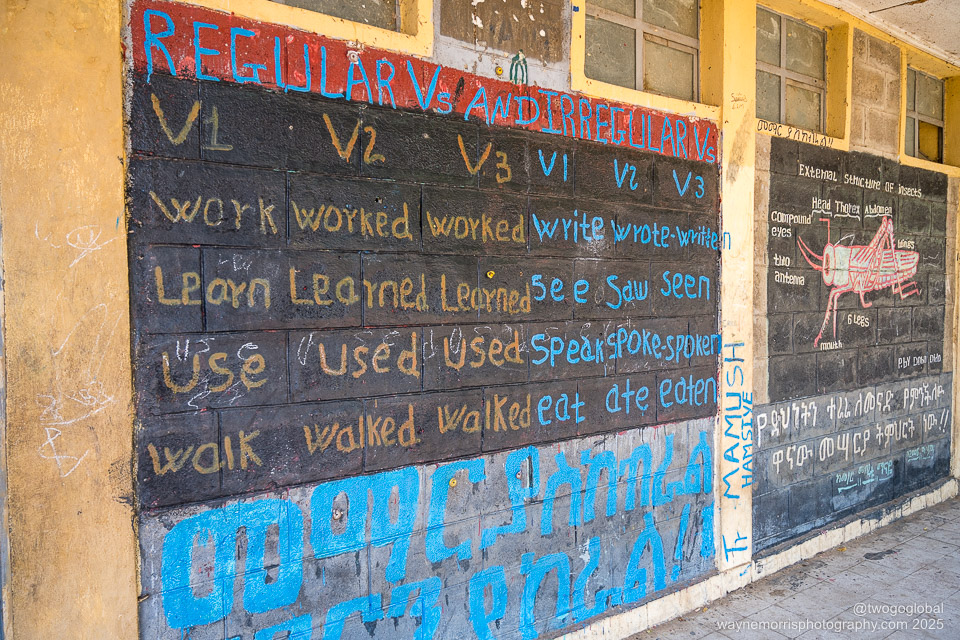 REGULAR Vs AND IRREGULAR Vs
V1 V2 V3 V1 V2 V3
work worked worked write wrote-written
Learn Learned Learned see saw seen
Use used used speak spoke-spoken
walk walked walked eat ate eaten
መማር ያስከብራል
Tr MAMUSH
HAMSIYE
External structure of insects
Head Thorex Abdomen
compound
eyes
wings
two
antenna
6 Legs
mouth
የድህነትን ተራራ ለመናድ የምንችለው
ዋናው መሣርያ ትምህርት ነው!!
@twogoglobal
waynemorrisphotography.com 2025